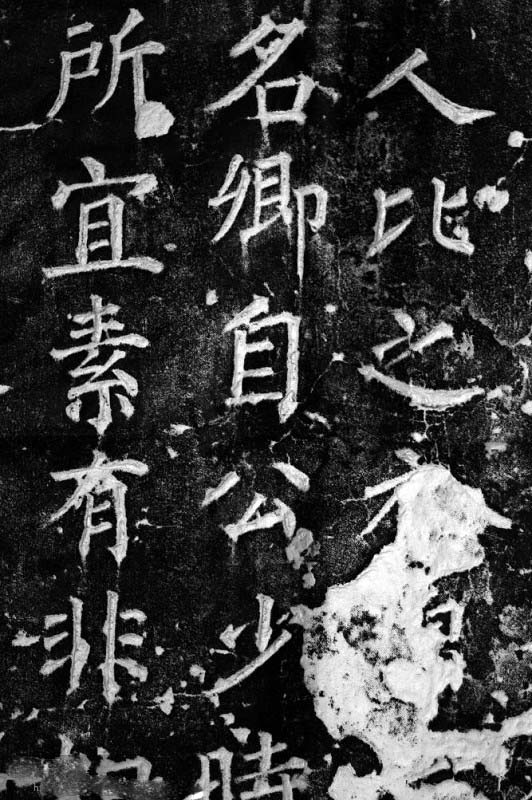 人比之
名卿自公少時
所宜素有非